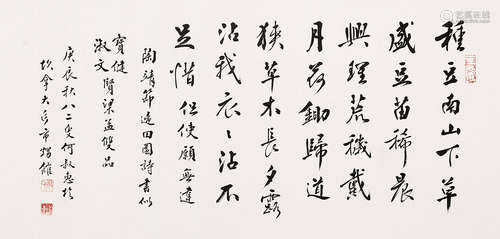 種豆南山下草
盛豆苗稀晨
興理荒穢戴
月荷鋤歸道
狹草木長夕露
沾我衣〻沾不
足惜但使願無違
陶靖節田園詩書似
寶健
淑文賢梁孟雙品
庚辰秋八二叟何叔惠於
坎拿大多市